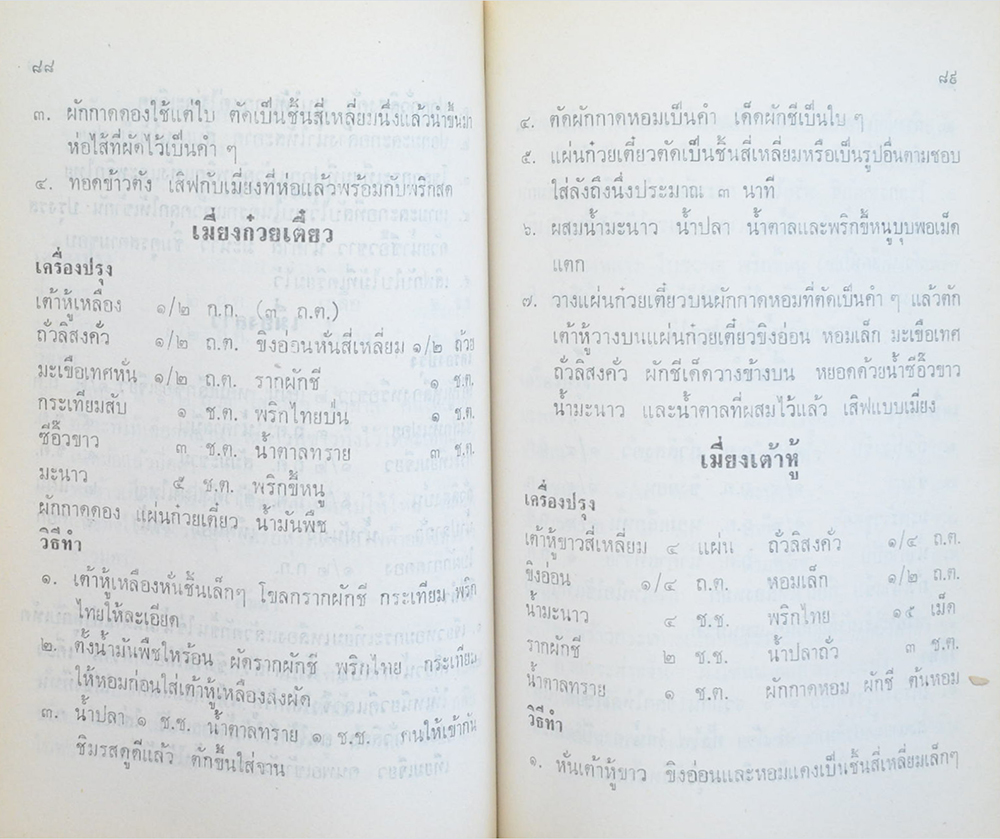 ๘๘
๓. ผักกาดดองใช้แต่ใบ ตัดเป็นชิ้นสี่เหลี่ยมนึ่งแล้วนำขึ้นมา
ห่อไส้ที่ผัดไว้เป็นคำ ๆ
๔. ทอดข้าวตัง เสิฟกับเมี่ยงที่ห่อแล้วพร้อมกับพริกสด
เมี่ยงก๋วยเตี๋ยว
เครื่องปรุง
เต้าหู้เหลือง ๑/๒ ก.ก. (๓ ถ.ต.)
ถั่วลิสงคั่ว ๑/๒ ถ.ต. ขิงอ่อนหั่นสี่เหลี่ยม ๑/๒ ถ้วย
มะเขือเทศหั่น ๑/๒ ถ.ต. รากผักชี ๑ ช.ต.
กระเทียมสับ ๑ ช.ต. พริกไทยป่น ๑ ช.ต.
ซีอิ๊วขาว ๓ ช.ต. น้ำตาลทราย ๓ ช.ต.
มะนาว ๕ ช.ต. พริกขี้หนู
ผักกาดดอง แผ่นก๋วยเตี๋ยว น้ำมันพืช
วิธีทำ
๑. เต้าหู้เหลืองหั่นชิ้นเล็กๆ โขลกรากผักชี กระเทียม พริก
ไทยให้ละเอียด
๒. ตั้งน้ำมันพืชให้ร้อน ผัดรากผักชี พริกไทย กระเทียม
ให้หอมก่อนใส่เต้าหู้เหลืองลงผัด
๓. น้ำปลา ๑ ช.ช. น้ำตาลทราย ๑ ช.ช. คนให้เข้ากัน
ชิมรสดูดีแล้ว ตักขึ้นใส่จาน
๘๙
๔. ตัดผักกาดหอมเป็นคำ เด็ดผักชีเป็นใบ ๆ
๕. แผ่นก๋วยเตี๋ยวตัดเป็นชิ้นสี่เหลี่ยมหรือเป็นรูปอื่นตามชอบ
ใส่ลังถึงนึ่งประมาณ ๓ นาที
๖. ผสมน้ำมะนาว น้ำปลา น้ำตาลและพริกขี้หนูบุบพอเม็ด
แตก
๗. วางแผ่นก๋วยเตี๋ยวบนผักกาดหอมที่ตัดเป็นคำ ๆ แล้วตัก
เต้าหู้วางบนแผ่นก๋วยเตี๋ยวขิงอ่อน หอมเล็ก มะเขือเทศ
ถั่วลิสงคั่ว ผักชีเด็ดวางข้างบน หยอดด้วยน้ำซีอิ๊วขาว
น้ำมะนาว และน้ำตาลที่ผสมไว้แล้ว เสิฟแบบเมี่ยง
เมี่ยงเต้าหู้
เครื่องปรุง
เต้าหู้ขาวสี่เหลี่ยม ๔ แผ่น ถั่วลิสงคั่ว ๑/๔ ถ.ต.
ขิงอ่อน ๑/๔ ถ.ต. หอมเล็ก ๑/๒ ถ.ต.
น้ำมะนาว ๔ ช.ช. พริกไทย ๑๕ เม็ด
รากผักชี ๒ ช.ช. น้ำปลาถั่ว ๓ ช.ต.
น้ำตาลทราย ๑ ช.ต. ผักกาดหอม ผักชี ต้นหอม
วิธีทำ
๑. หั่นเต้าหู้ขาว ขิงอ่อนและหอมแดงเป็นชิ้นสี่เหลี่ยมเล็กๆ